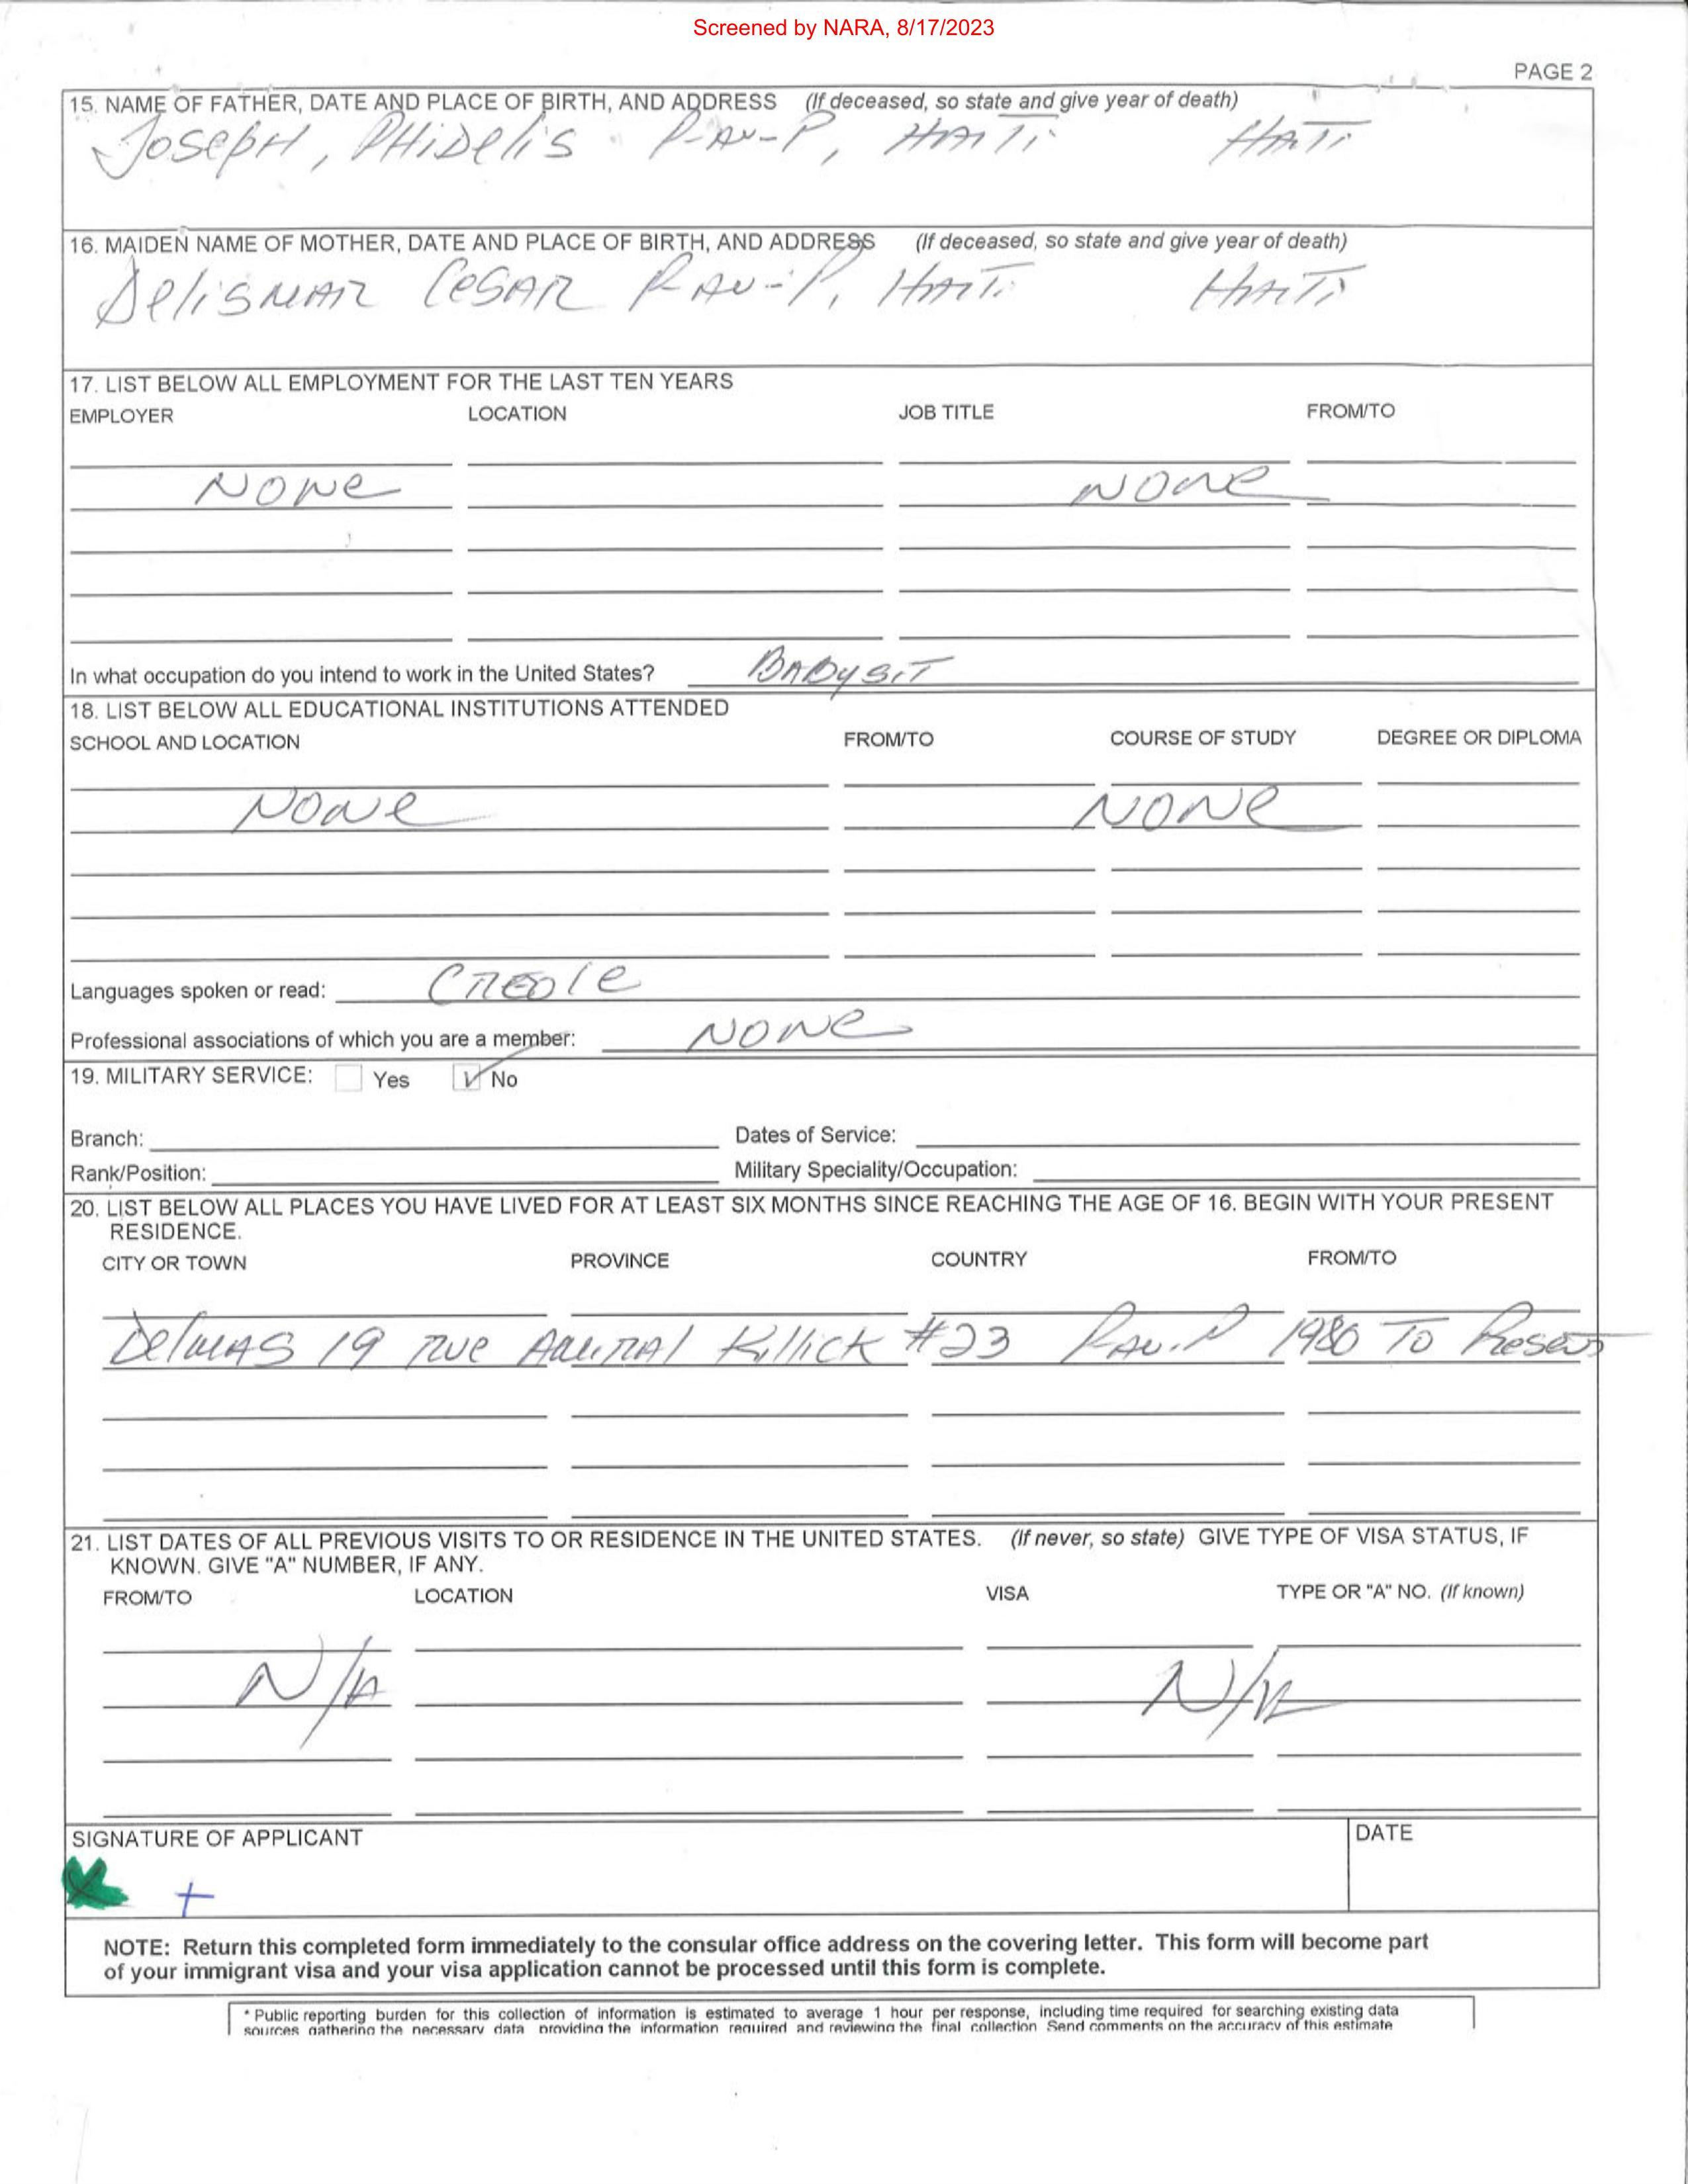 Screened by NARA, 8/17/2023
PAGE 2
15. NAME OF FATHER, DATE AND PLACE OF BIRTH, AND ADDRESS (If deceased, so state and give year of death)
JOSEPH, PHIDELIS P-AU-P, HAITI HAITI
16. MAIDEN NAME OF MOTHER, DATE AND PLACE OF BIRTH, AND ADDRESS (If deceased, so state and give year of death)
CESAR P-AU-P, HAITI HAITI
17. LIST BELOW ALL EMPLOYMENT FOR THE LAST TEN YEARS
EMPLOYER LOCATION JOB TITLE FROM/TO
NONE NONE
In what occupation do you intend to work in the United States? BABYSIT
18. LIST BELOW ALL EDUCATIONAL INSTITUTIONS ATTENDED
SCHOOL AND LOCATION FROM/TO COURSE OF STUDY DEGREE OR DIPLOMA
NONE NONE
Languages spoken or read: CREOLE
Professional associations of which you are a member: NONE
19. MILITARY SERVICE: Yes No
Branch: Dates of Service:
Rank/Position: Military Speciality/Occupation:
20. LIST BELOW ALL PLACES YOU HAVE LIVED FOR AT LEAST SIX MONTHS SINCE REACHING THE AGE OF 16. BEGIN WITH YOUR PRESENT
RESIDENCE.
CITY OR TOWN PROVINCE COUNTRY FROM/TO
Delmas 19 rue Killick #23 P.au.P 1980 To Present
21. LIST DATES OF ALL PREVIOUS VISITS TO OR RESIDENCE IN THE UNITED STATES. (If never, so state) GIVE TYPE OF VISA STATUS, IF
KNOWN. GIVE "A" NUMBER, IF ANY.
FROM/TO LOCATION VISA TYPE OR "A" NO. (If known)
N/A N/A
SIGNATURE OF APPLICANT DATE
X +
NOTE: Return this completed form immediately to the consular office address on the covering letter. This form will become part
of your immigrant visa and your visa application cannot be processed until this form is complete.
* Public reporting burden for this collection of information is estimated to average 1 hour per response, including time required for searching existing data
sources gathering the necessary data providing the information required and reviewing the final collection Send comments on the accuracy of this estimate